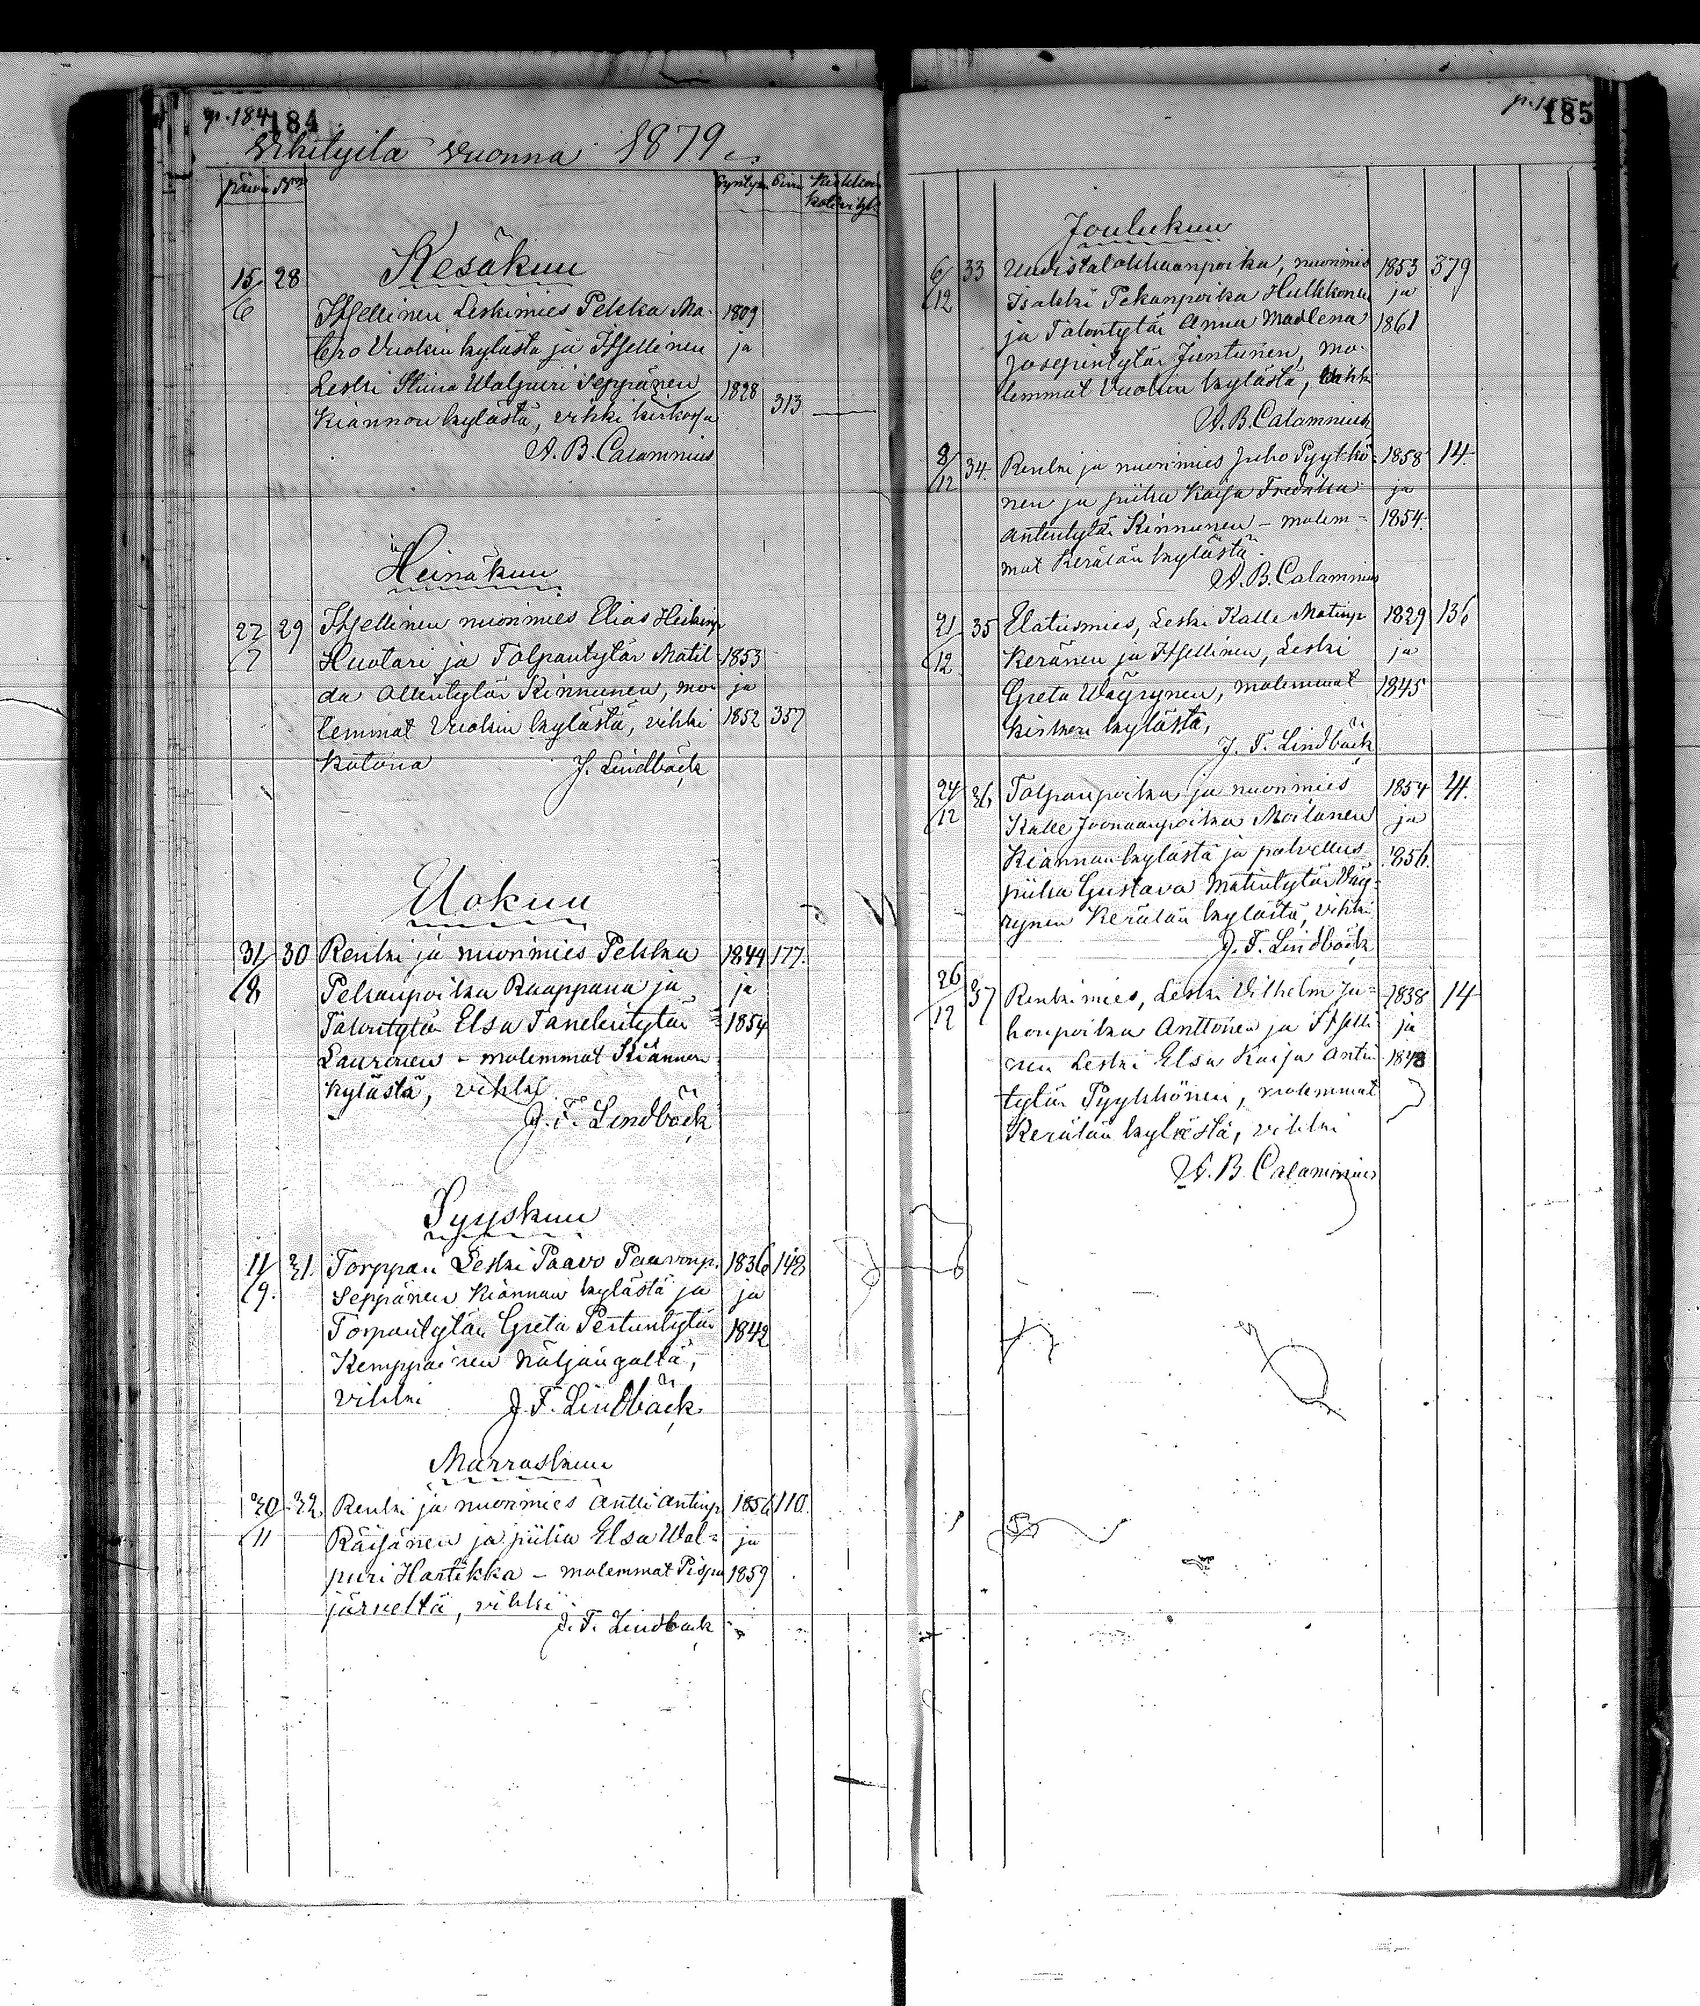 p. 184 184
Vihityitä vuonna 1879
päivä Nro Syntyn. Sivu
Kesäkuu
15/6 28
Itsellinen Leskimies Pekka Ma- 1809
lero Vuokin kylästä ja Itsellinen ja
Leski Stina Walpuri Seppänen 1828
Kiannon kylästä, vihki kirkossa 313
A. B. Calamnius
Heinäkuu
27/7 29 Itsellinen nuorimies Elias Heikinp
Huotari ja Talpantytär Matil- 1853
da Ollintytär Kinnunen, mo- ja
lemmat Vuokin kylästä, vihki 1852 357
kotona J. Lindbäck
Elokuu
31/8 30 Renki ja nuorimies Pekka 1844 177.
Pekanpoika Raappana ja ja
Talontytär Elsa Tanelintytär 1854
Laurinen - molemmat Kiannon
kylästä, vihki
J. F. Lindbäck
Syyskuu
11/9. 31. Torppari Leski Paavo Paavonp. 1836 148
Seppänen Kiannon kylästä ja ja
Torparitytär Greta Pertuntytär 1842
Kemppainen Näljängältä,
vihki J. F. Lindbäck
Marraskuu
30/11 32 Renki ja nuorimies Antti Antinp 1856 110.
Räisänen ja piika Elsa Wal- ja
puri Hartikka - molemmat Pispa 1859
järveltä, vihki
J. F. Lindbäck
185
Joulukuu
6/12 33 Uudistalokkaanpoika, nuorimies 1853 379
Isakki Pekanpoika Hulkkonen ja
ja Talontytär Anna Madlena 1861
Josepintytär Juntunen, mo-
lemmat Vuokin kylästä, vihki
A. B. Calamnius
8/12 34. Renki ja nuorimies Juho Pyykkö- 1858 14.
nen ja piika Kaisa Fredrika ja
Antintytär Kinnunen - molem- 1854.
mat Kerälän kylästä.
A. B. Calamnius
21/12 35 Elatusmies, Leski Kalle Matinp 1829 136
Keränen ja Itsellinen, Leski ja
Greta Wäyrynen, molemmat 1845
kylästä,
J. F. Lindbäck
24/12 36 Talpanpoika ja nuorimies 1854 4.
Kalle Joonaanpoika Moilanen ja
Kiannan kylästä ja palvellus 1856.
piika Gustava Matintytär Väy-
rynen Kerälän kylästä, vihki
J. F. Lindbäck
26/12 37 Renkimies, Leski Vilhelm Ju- 1838 14
honpoika Anttonen ja Itselli- ja
nen Leski Elsa Kaisa Antin- 1843
tytär Pyykkönen, molemmat
Kerälän kylästä, vihki
A. B. Calamnius